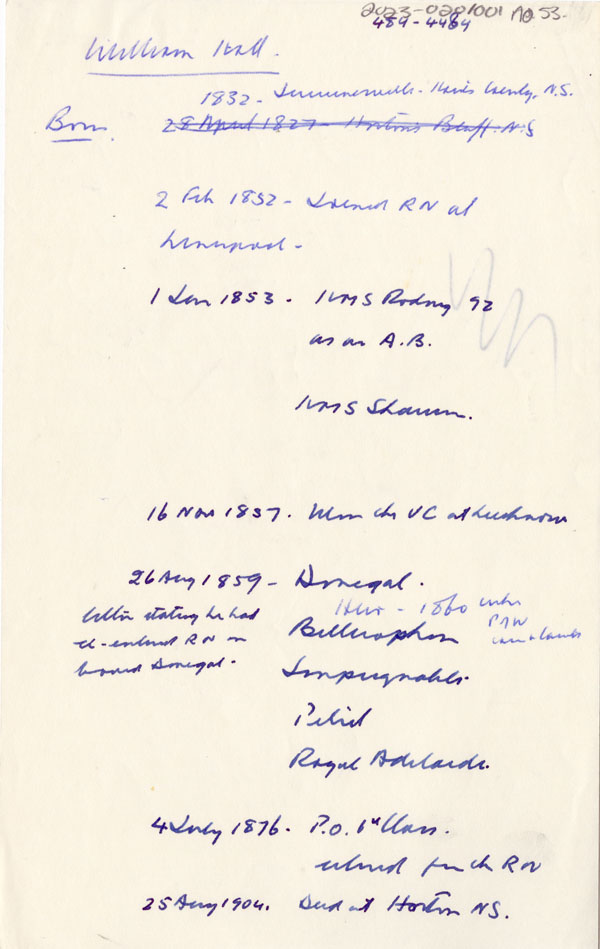 2023-020/001 no 53.
454-4484
William Hall.
1832 - Summerville - Hants County, N.S.
Born. 28 April 1827 - Horton's Bluff. N.S
2 Feb 1852 - Joined RN at
Liverpool -
1 Jan 1853 - HMS Rodney 92
as an A.B.
HMS Shannon.
16 Nov 1857. Won the VC at Lucknow
26 Aug 1859 - Donegal.
Hero - 1860 when
P of W
came to
letter stating he had
re-entered RN on
board Donegal.
Bellerophon
Impregnable.
Petrel
Royal Adelaide.
4 July 1876. P.O. 1st Class.
retired from the RN
25 Aug 1904. Died at Horton NS.